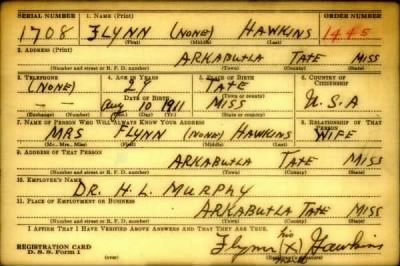 SERIAL NUMBER 1. NAME (Print) ORDER NUMBER
1708 FLYNN (NONE) HAWKINS 1445
(First) (Middle) (Last)
2. ADDRESS (Print)
ARKABUTLA TATE MISS
(Number and street or R. F. D. number) (Town) (County) (State)
3. TELEPHONE 4. AGE IN YEARS 5. PLACE OF BIRTH 6. COUNTRY OF CITIZENSHIP
(NONE) 28 TATE
DATE OF BIRTH (Town or county)
-- Aug 10 1911 MISS U.S.A
(Exchange) (Number) (Mo.) (Day) (Yr.) (State or country)
7. NAME OF PERSON WHO WILL ALWAYS KNOW YOUR ADDRESS 8. RELATIONSHIP OF THAT PERSON
MRS FLYNN (NONE) HAWKINS WIFE
(Mr., Mrs., Miss) (First) (Middle) (Last)
9. ADDRESS OF THAT PERSON
ARKABUTLA TATE MISS
(Number and street or R. F. D. number) (Town) (County) (State)
10. EMPLOYER'S NAME
DR. H. L. MURPHY
11. PLACE OF EMPLOYMENT OR BUSINESS
ARKABUTLA TATE MISS
(Number and street or R. F. D. number) (Town) (County) (State)
I AFFIRM THAT I HAVE VERIFIED ABOVE ANSWERS AND THAT THEY ARE TRUE.
REGISTRATION CARD his
D. S. S. Form 1 Flynn (X) Hawkins